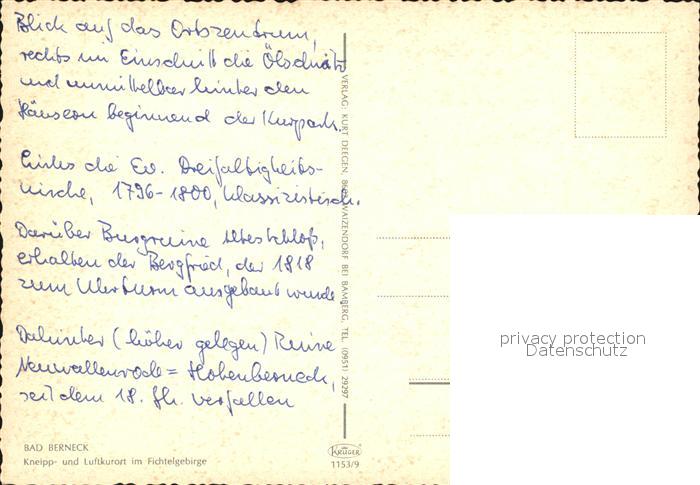 Blick auf das Ortszentrum,
rechts im Einschnitt die Ölschnitz
und unmittelbar hinter den
Häusern beginnend der Kurpark.
Links die Ev. Dreifaltigkeits-
kirche, 1796-1800, klassizistisch.
Darüber Burgruine Altes Schloß,
erhalten der Bergfried, der 1818
zum Uhrturm ausgebaut wurde
Dahinter (höher gelegen) Ruine
Neuwallenrode = Hohenberneck,
seit dem 18. Jh. verfallen
BAD BERNECK
Kneipp- und Luftkurort im Fichtelgebirge
VERLAG: KURT DEEGEN, WAIZENDORF BEI BAMBERG, TEL. (0951) 29297
KRÜGER
1153/9
privacy protection
Datenschutz